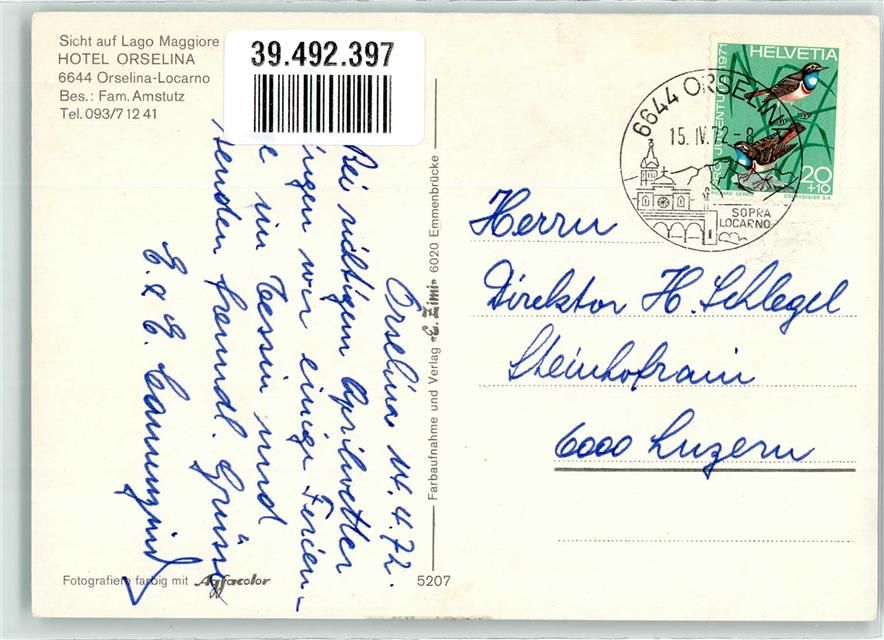 Sicht auf Lago Maggiore
HOTEL ORSELINA
6644 Orselina-Locarno
Bes.: Fam. Amstutz
Tel. 093/7 12 41
39.492.397
HELVETIA
PRO JUVENTUTE 1971
20
+10
COURVOISIER S.A.
6644 ORSELINA
15.IV.72-8
SOPRA
LOCARNO
Orselina 14.4.72.
Bei richtigem Aprilwetter
ingen wir einige Ferien-
e im Tessin und
senden freundl. Grüsse
E. & E.
Herrn
Direktor H. Schlegel
Steinhofrain
6000 Luzern
Farbaufnahme und Verlag E. Zimi 6020 Emmenbrücke
Fotografiere farbig mit Agfacolor
5207